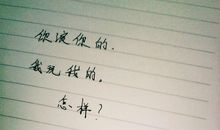 你你的.
我玩我的。
怎样?